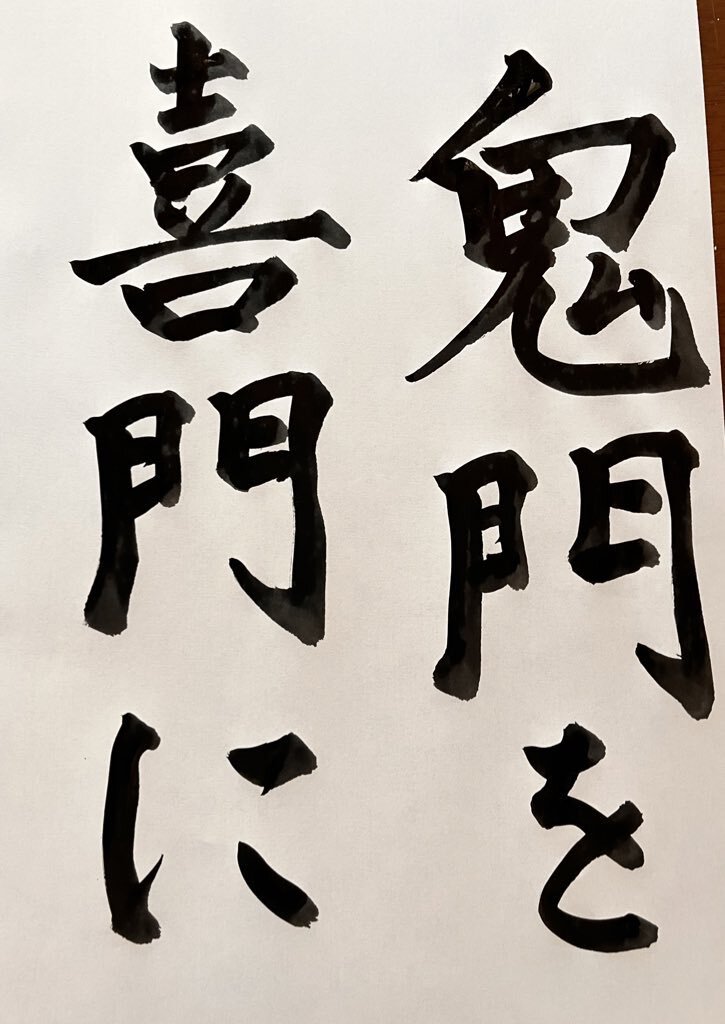 鬼門を
喜門に